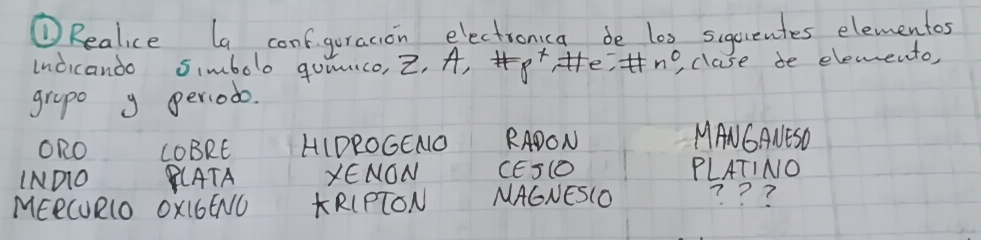 ① Realice la configuración electronica de los siguientes elementos
indicando simbolo químico, Z, A, #p⁺, #e⁻, #n⁰, clase de elemento,
grupo y periodo.
ORO COBRE HIDROGENO RADON MANGANESO
INDIO PLATA XENON CESIO PLATINO
MERCURIO OXIGENO KRIPTON MAGNESIO ???